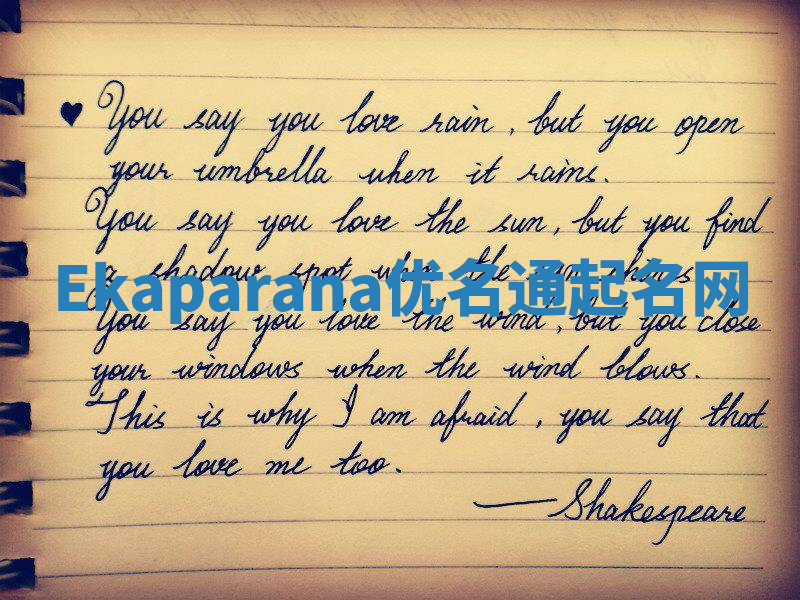 ♥ You say you love rain, but you open
your umbrella when it rains.
You say you love the sun, but you find
a shadow spot when the sun shines
Ekaparana优名通起名网
You say you love the wind, but you close
your windows when the wind blows.
This is why I am afraid, you say that
you love me too.
— Shakespeare